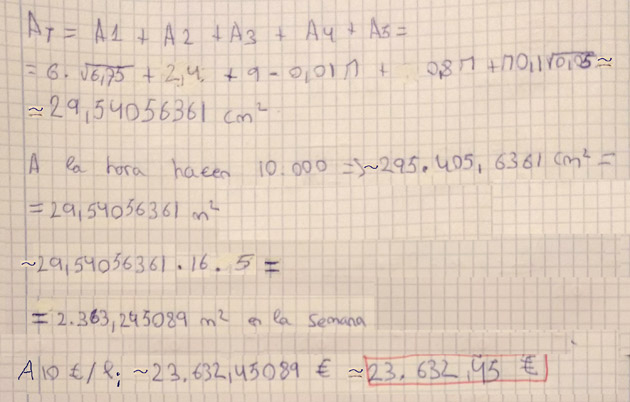 A_T = A1 + A2 + A3 + A4 + A5 =
= 6·√6,75 + 2,4 + 9 - 0,01π + 0,8π + π0,1√0,05 ≈
≈ 29,54056361 cm²
A la hora hacen 10.000 => ~295.405,6361 cm² =
= 29,54056361 m²
~29,54056361 · 16 · 5 =
= 2.363,245089 m² en la semana
A 10 €/l; ~23.632,45089 € ≈ 23.632,45 €